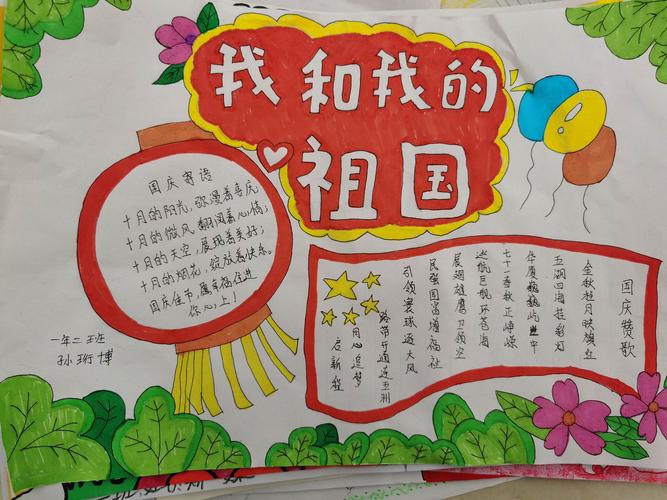 我和我的
祖国
国庆寄语
十月的阳光，弥漫着喜庆；
十月的微风，翻阅着心情；
十月的天空，展现着美好；
十月的烟花，绽放着快乐。
国庆佳节，愿幸福住进
你心上！
一年二班
孙珩博
国庆赞歌
金秋桂月映旗红
五湖四海挂彩灯
华厦巍巍屹立中
七十一春秋正峥嵘
巡航巨舰环苍海
展翅雄鹰卫领空
民强国富增福祉
引领寰球逐大风
路带开通连五洲
同心追梦
启新程